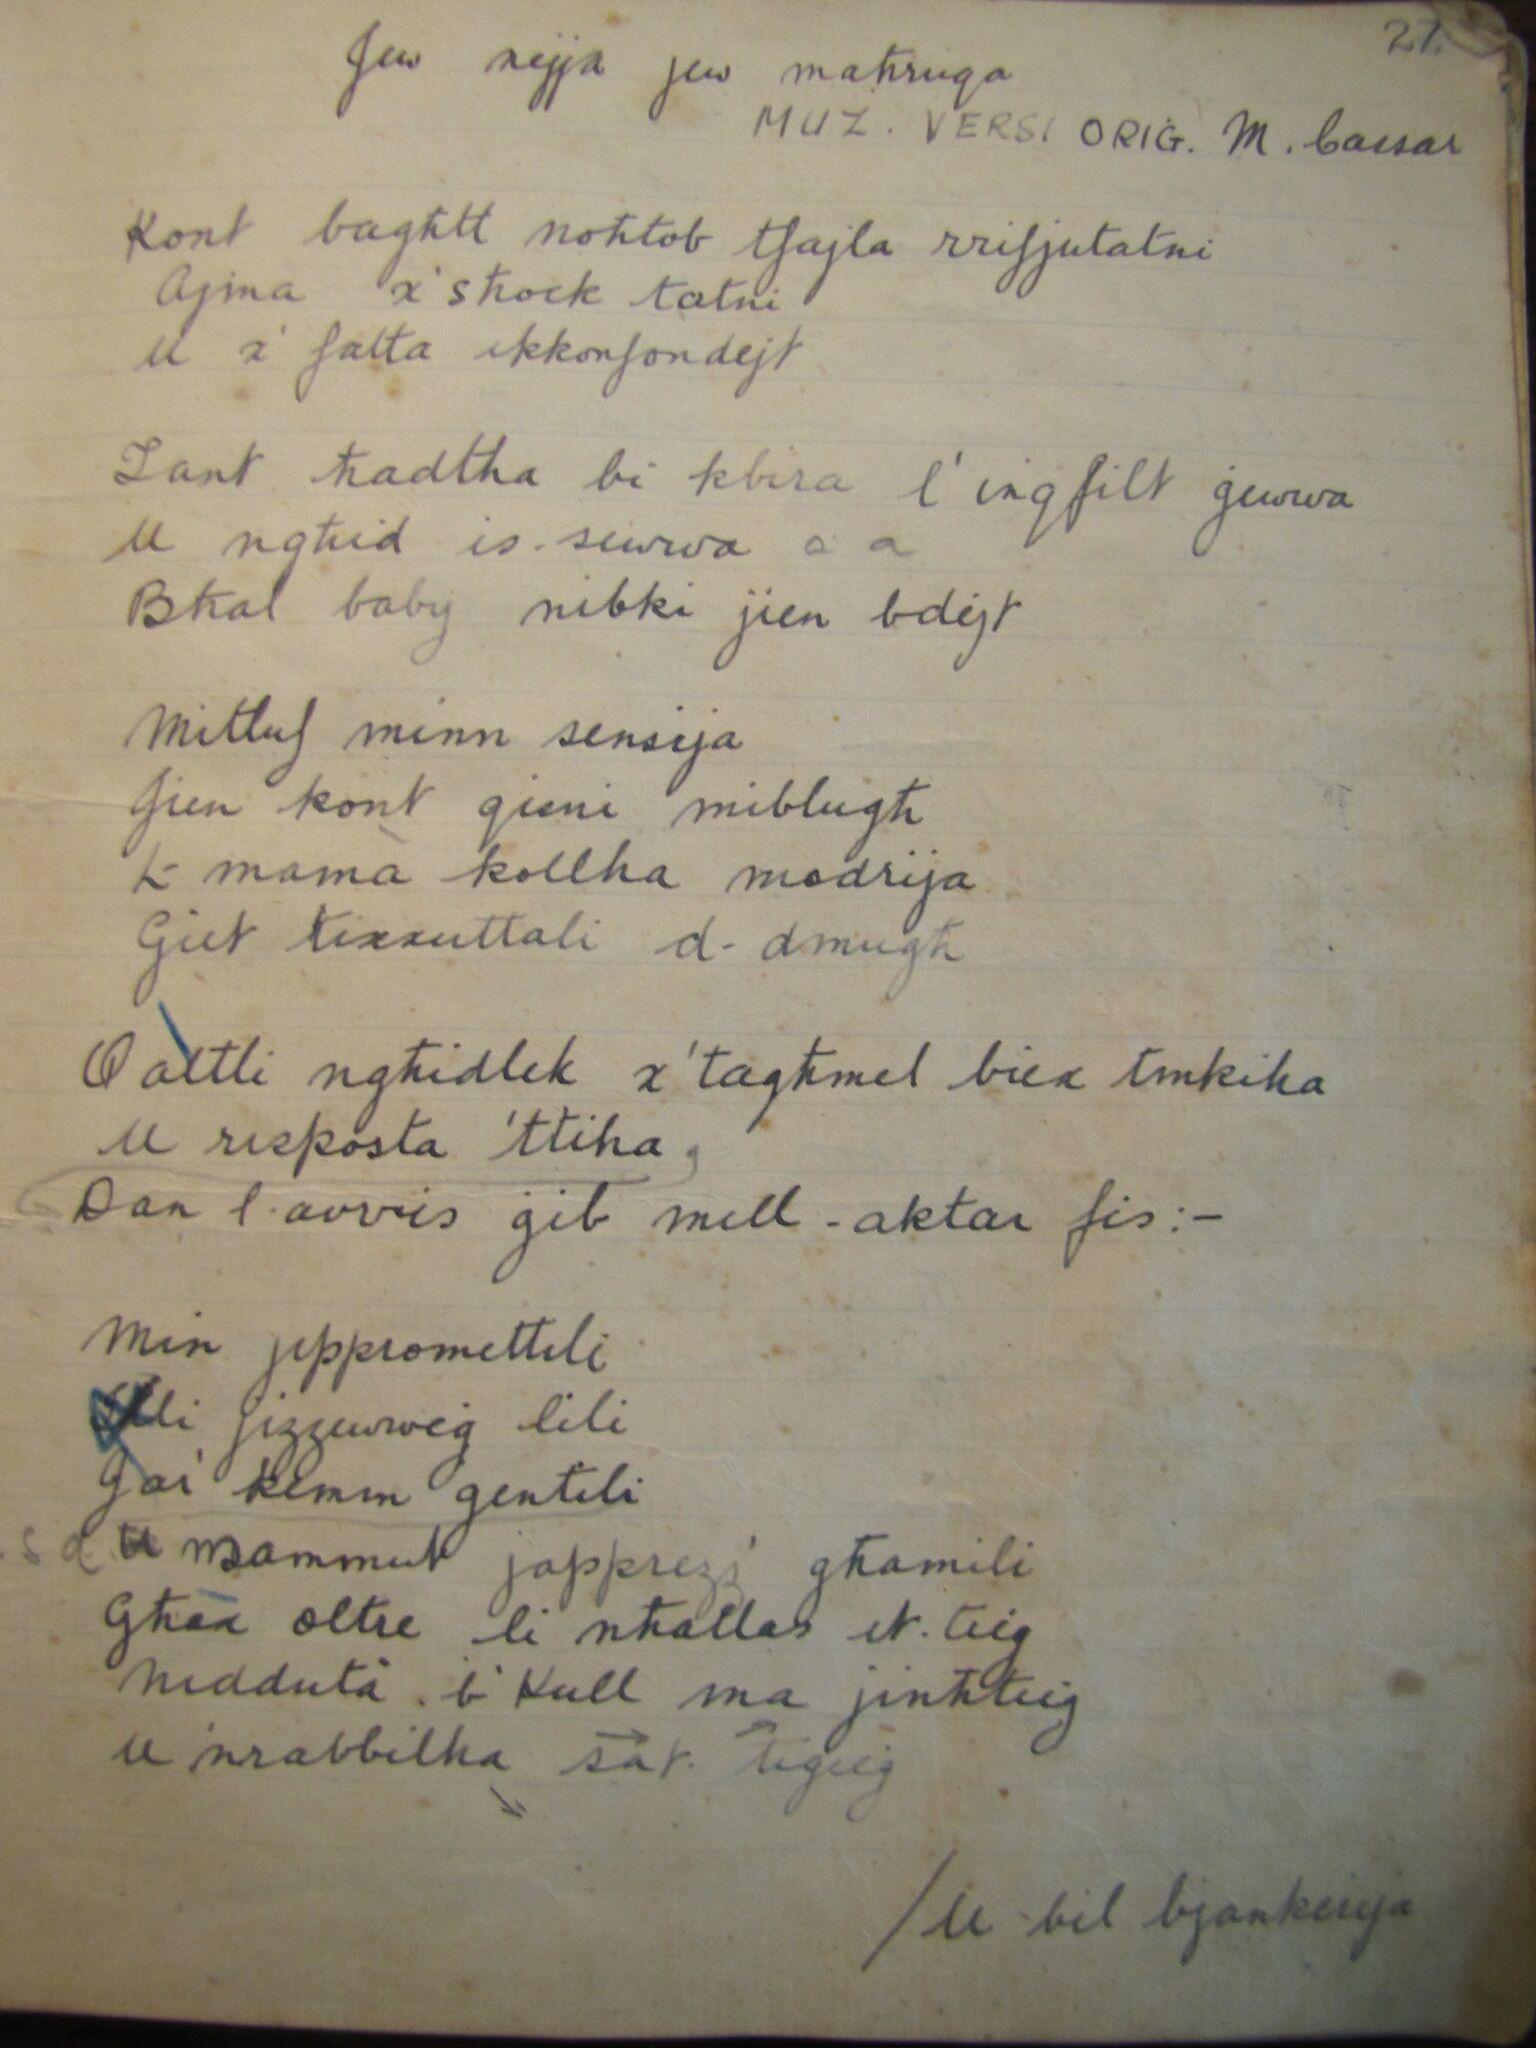 27.
Jew nejja jew maħruqa
MUZ. VERSI ORIĠ. M. Cassar
Kont bagħtt noħtob tfajla rrifjutatni
Ajma x'shock tatni
U x' ħatta ikkonfondejt
Tant ħadtha bi kbira l'inqfilt ġewwa
U ngħid is-sewwa a a
Bħal baby nibki jien bdejt
Mitluf minn sensija
Jien kont qieni miblugħ
L-mamà kollha modrija
Ġiet tixxuttali d-dmugħ
Qaltli ngħidlek x'tagħmel biex tinkiha
U risposta 'ttiha,
Dan l-avvis ġib mill-aktar fis:-
Min jippromettili
Illi jizzewweġ lili
Jai kemm gentili
U nsammut japprezz' għamili
Għax oltre li nħallas it-tieġ
Niddutà b'kull ma jinħtieġ
U nrabbilha sat-tiġieġ
/U bil bjankerija